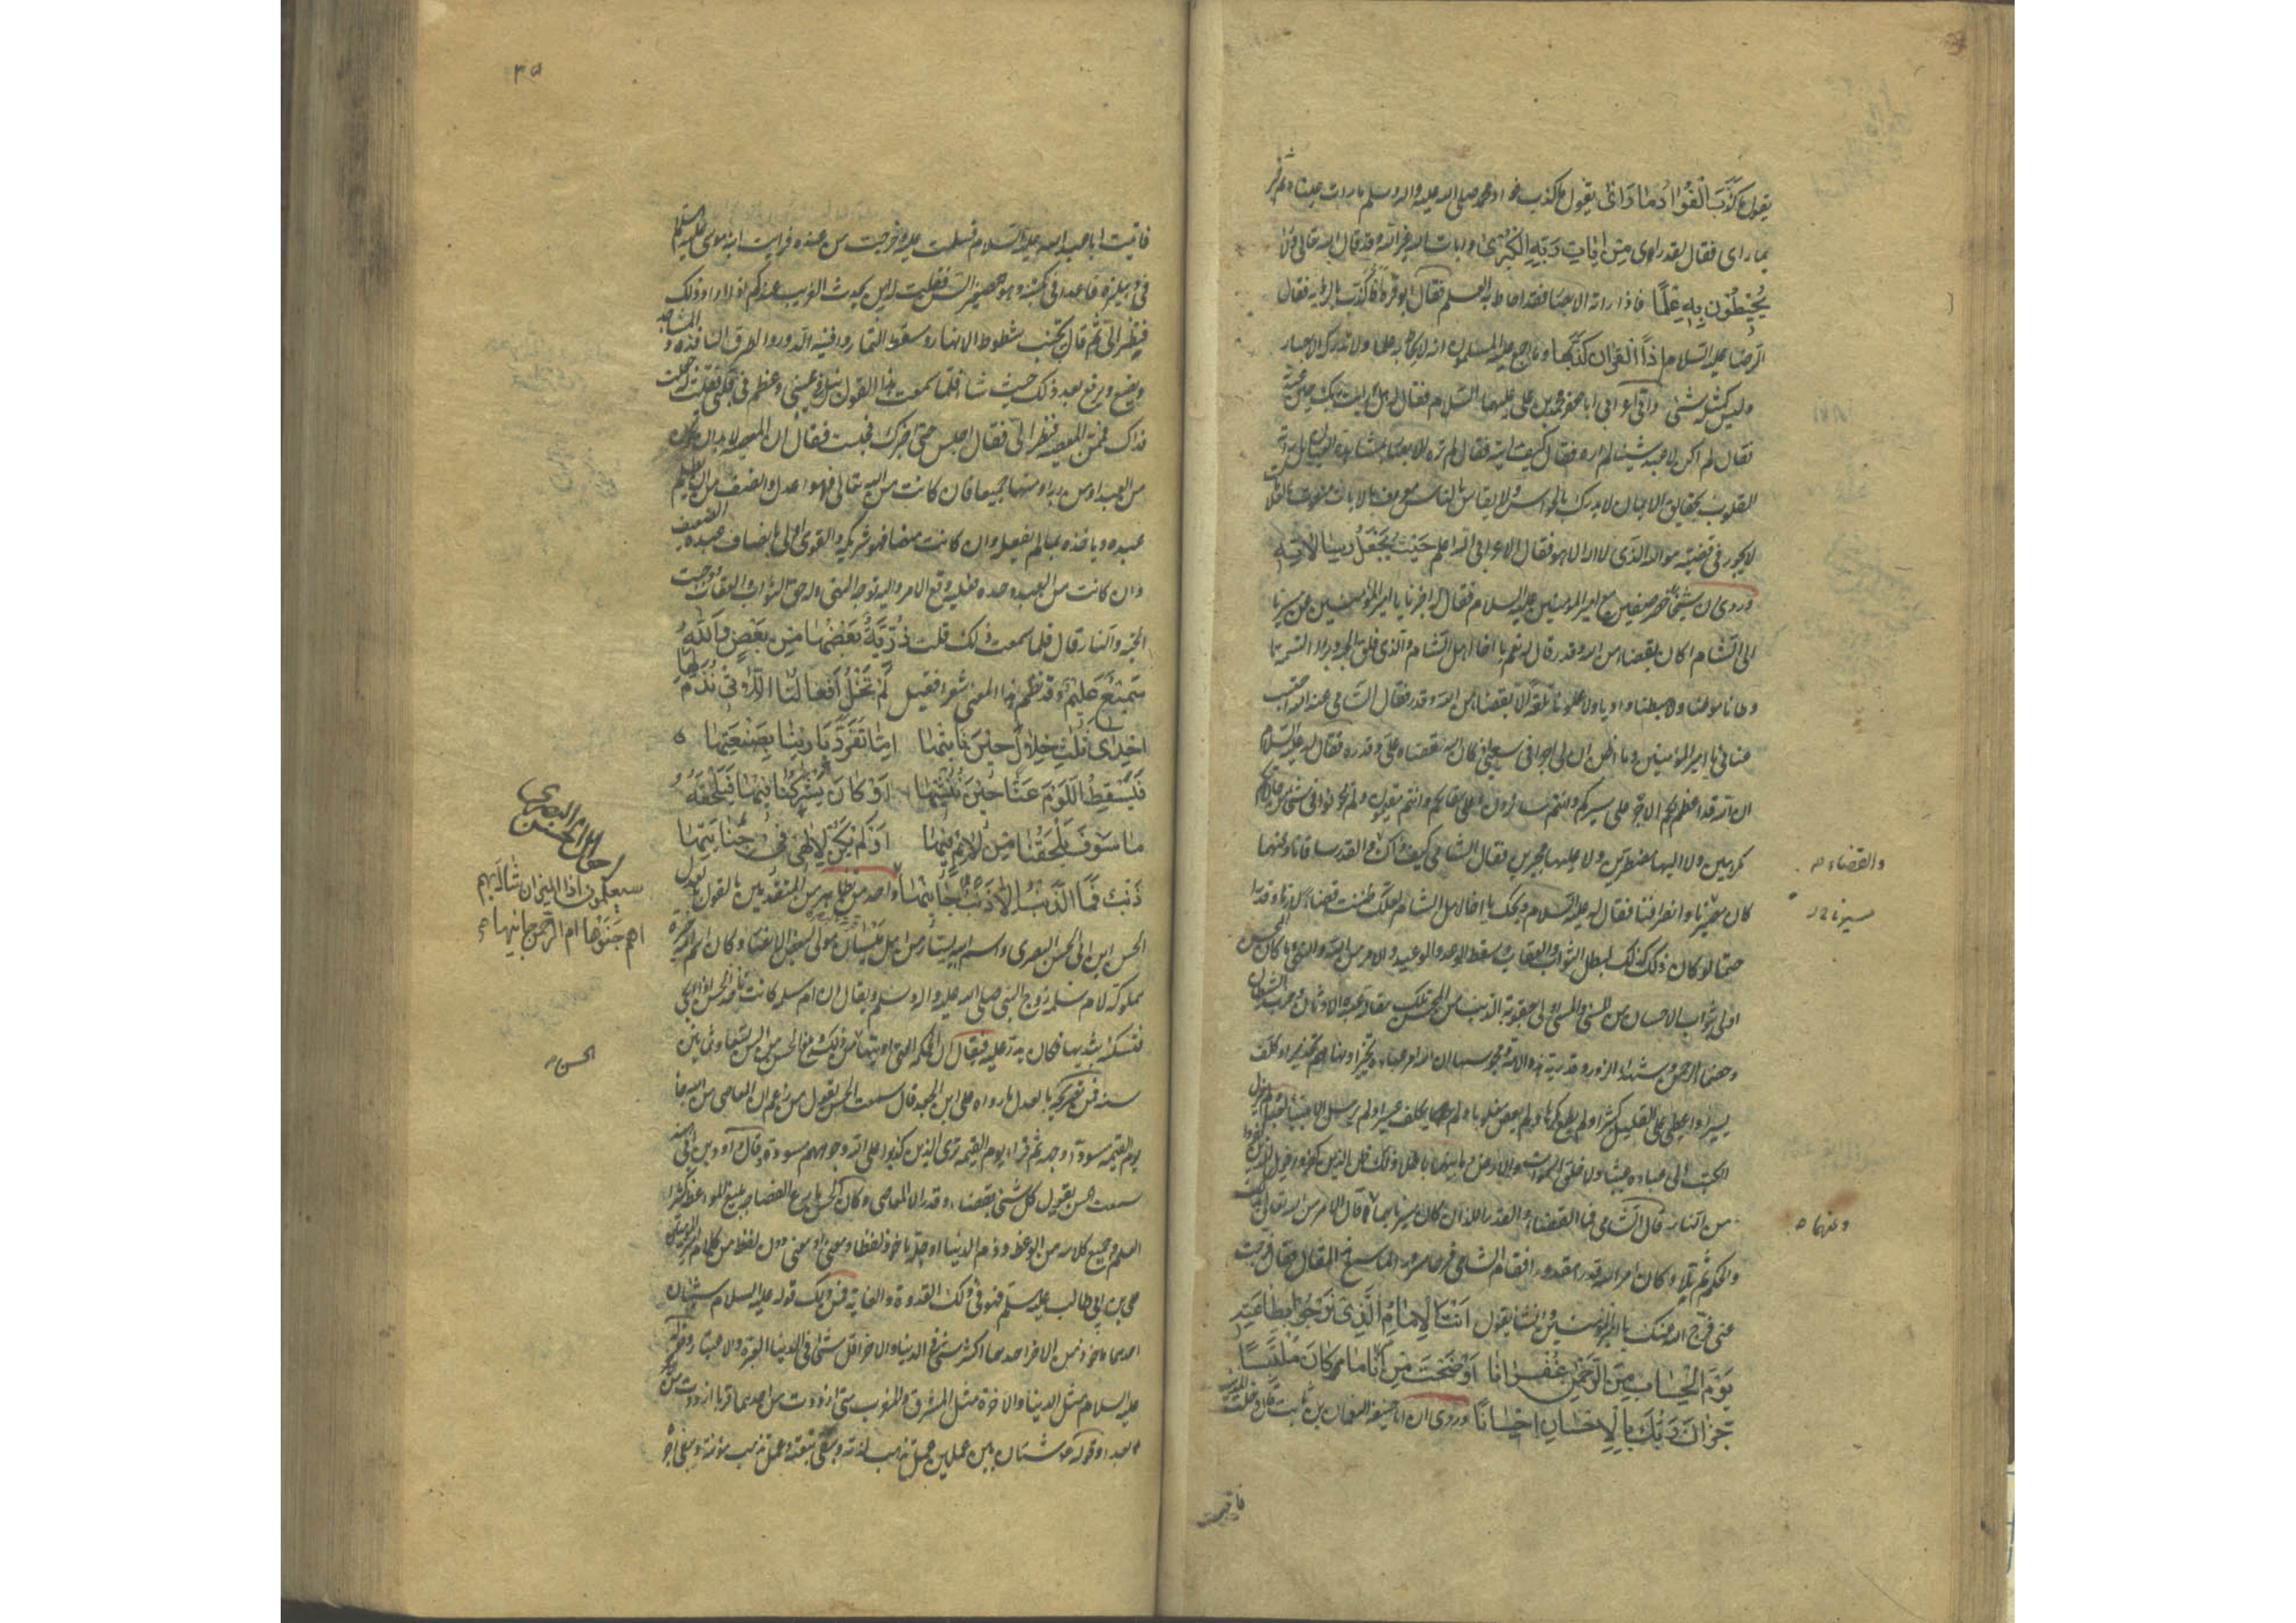 يقول ما كَذَبَ الْفُؤَادُ مَا رَأَى يقول ما كذب فؤاد محمد صلى الله عليه واله وسلم ما رأت عيناه ثم اخبر
بما رأى فقال لقد رأى مِنْ ايَاتِ رَبِّهِ الْكُبْرَى وايات الله غير الله وقد قال الله تعالى ولا
يُحِيطُونَ بِهِ عِلْمًا فاذا راته الابصار فقد احاط به العلم فقال ابو قرة فاكذب بالرؤية فقال
الرضا عليه السلام اذا القران كذبها وما اجمع عليه المسلمون انه لا يحاط به علما ولا تدركه الابصار
وليس كمثله شئ واتى اعرابى ابا جعفر محمد بن على عليهما السلام فقال له هل رايت ربك حين عبدته
فقال لم اكن لاعبد شيئا لم اره فقال كيف رايته فقال لم تره الابصار بمشاهدة العيان بل راته
القلوب بحقايق الايمان لا يدرك بالحواس ولا يقاس بالناس معروف بالايات منعوت بالعلامات
لا يجور فى قضيته هو الله الذى لا اله الا هو فقال الاعرابى الله اعلم حَيْثُ يَجْعَلُ رِسَالَاتِهِ
وروى ان شيخا حضر صفين مع امير المؤمنين عليه السلام فقال له اخبرنا يا امير المؤمنين عن مسيرنا
الى الشام اكان بقضاء من الله وقدر قال له نعم يا اخا اهل الشام والذى فلق الحبة وبرا النسمة ما
وطانا موطئا ولا هبطنا واديا ولا علونا تلعة الا بقضاء من الله وقدر فقال الشامى عند الله احتسب
عنائى يا امير المؤمنين وما اظن ان لى اجرا فى سعيى اذا كان الله قضاه على وقدره فقال له عليه السلام
ان الله قد اعظم لكم الاجر على مسيركم وانتم سائرون وعلى مقامكم وانتم مقيمون ولم تكونوا فى شئ من حالاتكم
مكرهين ولا اليها مضطرين ولا عليها مجبرين فقال الشامى كيف ذاك والقدر ساقانا وعنهما
والقضاء
كان مسيرنا وانصرافنا فقال له عليه السلام ويحك يا اخا اهل الشام لعلك ظننت قضاء لازما وقدرا
مسيرنا
حتما لو كان ذلك كذلك لبطل الثواب والعقاب وسقط الوعد والوعيد والامر من الله والنهى وما كان المحسن
اولى بثواب الاحسان من المسئ والمسئ اولى بعقوبة الذنب من المحسن تلك مقالة عبدة الاوثان وحزب الشيطان
وخصماء الرحمن وشهداء الزور وقدرية هذه الامة ومجوسها ان الله امر عباده تخييرا ونهاهم تحذيرا وكلف
يسيرا واعطى على القليل كثيرا ولم يطع مكرها ولم يعص مغلوبا ولم يكلف عسيرا ولم يرسل الانبياء لعبا ولم ينزل
الكتب الى عباده عبثا ولا خلق السموات والارض وما بينهما باطلا ذلك ظن الذين كفروا فويل للذين كفروا
من النار قال الشامى فما القضاء والقدر اللذان كان مسيرنا بهما قال الامر من الله تعالى بذلك
وعنهما
والحكم ثم تلا وكان امر الله قدرا مقدورا فقام الشامى فرحا مسرورا لما سمع هذا المقال فقال فرجت
عنى فرج الله عنك يا امير المؤمنين وانشا يقول اَنْتَ الْاِمَامُ الَّذِى نَرْجُو بِطَاعَتِهِ
يَوْمَ الْحِسَابِ مِنَ الرَّحْمٰنِ غُفْرَانَا اَوْضَحْتَ مِنْ اَمْرِنَا مَا كَانَ مُلْتَبِسًا
جَزَاكَ رَبُّكَ بِالْاِحْسَانِ اِحْسَانًا وروى ان ابا حنيفة النعمان بن ثابت قال دخلت المدينة
فاتيت
٣٥
فاتيت ابا عبد الله عليه السلام فسلمت عليه وخرجت من عنده فرايت ابنه موسى عليه السلم
فى دهليزه قاعدا فى مكتبه وهو صغير السن فقلت له اين يحدث الغريب عندكم اذا اراد ذلك
فنظر الى ثم قال يجتنب شطوط الانهار ومسقط الثمار وافنية الدور والطرق النافذة والمساجد
ويضع ويرفع بعد ذلك حيث شاء فلما سمعت هذا القول نبل فى عينى وعظم فى قلبى فقلت له جعلت
فداك فممن المعصية فنظر الى فقال اجلس حتى اخبرك فجلست فقال ان المعصية لا بد ان تكون
من العبد او من ربه او منهما جميعا فان كانت من الله تعالى فهو اعدل وانصف من ان يظلم
عبده وياخذه بما لم يفعله وان كانت منهما فهو شريكه والقوى اولى بانصاف عبده الضعيف
وان كانت من العبد وحده فعليه وقع الامر واليه توجه النهى وله حق الثواب والعقاب ووجبت
الجنة والنار قال فلما سمعت ذلك قلت ذُرِّيَّةً بَعْضُهَا مِنْ بَعْضٍ وَاللّٰهُ
سَمِيعٌ عَلِيمٌ وقد نظم هذا المعنى شعرا فقيل لَمْ تَخْلُ اَفْعَالُنَا اللَّاتِى نُذَمُّ لَهَا
اِحْدَى ثَلٰثِ خِلَالٍ حِينَ نَاْتِيهَا اِمَّا تَفَرَّدَ بَارِينَا بِصَنْعَتِهَا
فَيَسْقُطُ اللَّوْمُ عَنَّا حِينَ نُنْشِيهَا اَوْ كَانَ يَشْرَكُنَا فِيهَا فَيَلْحَقُهُ
مَا سَوْفَ يَلْحَقُنَا مِنْ لَائِمٍ فِيهَا اَوْ لَمْ يَكُنْ لِاِلٰهِى فِى جِنَايَتِهَا
ذَنْبٌ فَمَا الذَّنْبُ اِلَّا ذَنْبُ جَانِيهَا واحد من تظاهر من المتقدمين بالقول بعدل
احوال الحسن البصرى
سيعلمون اذا الميزان شال بهم
اهم جَنَوْهَا ام الرحمن جانيها
الحسن ابن ابى الحسن البصرى واسم ابيه يسار من اهل ميسان مولى لبعض الانصار وكان اسم امه خيرة
مملوكة لام سلمة زوج النبى صلى الله عليه واله وسلم ويقال ان ام سلمة كانت تاخذ الحسن اذا بكى
فتسكته بثديها فكان يدر عليه فيقال ان الحكمة التى اوتيها من ذلك وبلغ الحسن من السن تسعا وثمانين
الحسن
سنة فمن تصريحه بالعدل ما رواه على ابن الجعد قال سمعت الحسن يقول من زعم ان المعاصى من الله جاء
يوم القيمة مسودا وجهه ثم قرا ويوم القيمة ترى الذين كذبوا على الله وجوههم مسودة وقال داود بن ابى هند
سمعت الحسن يقول كل شئ بقضاء وقدر الا المعاصى وكان الحسن بارع الفصاحة بليغ المواعظ كثير
العلم وجميع كلامه من الوعظ وذم الدنيا او جله ماخوذ لفظا ومعنى او معنى دون لفظ من كلام امير المؤمنين
على بن ابى طالب عليه السلم فهو فى ذلك القدوة والغاية فمن ذلك قوله عليه السلام شيئان
احدهما ماخوذ من الاخر احدهما اكثر شئ فى الدنيا والاخر اقل شئ فى الدنيا العبرة والاعتبار وقوله
عليه السلام مثل الدنيا والاخرة مثل المشرق والمغرب متى ازددت من احدهما قربا ازددت من
بعدا وقوله شتان بين عملين عمل تذهب لذته وتبقى تبعته وعمل تذهب مؤنته ويبقى اجره